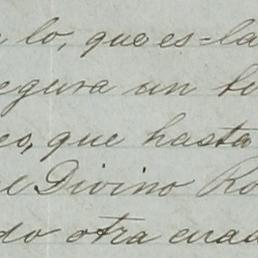 lo, que es=la
egura un b
eo, que hasta
el Divino Ro
do otra cuad